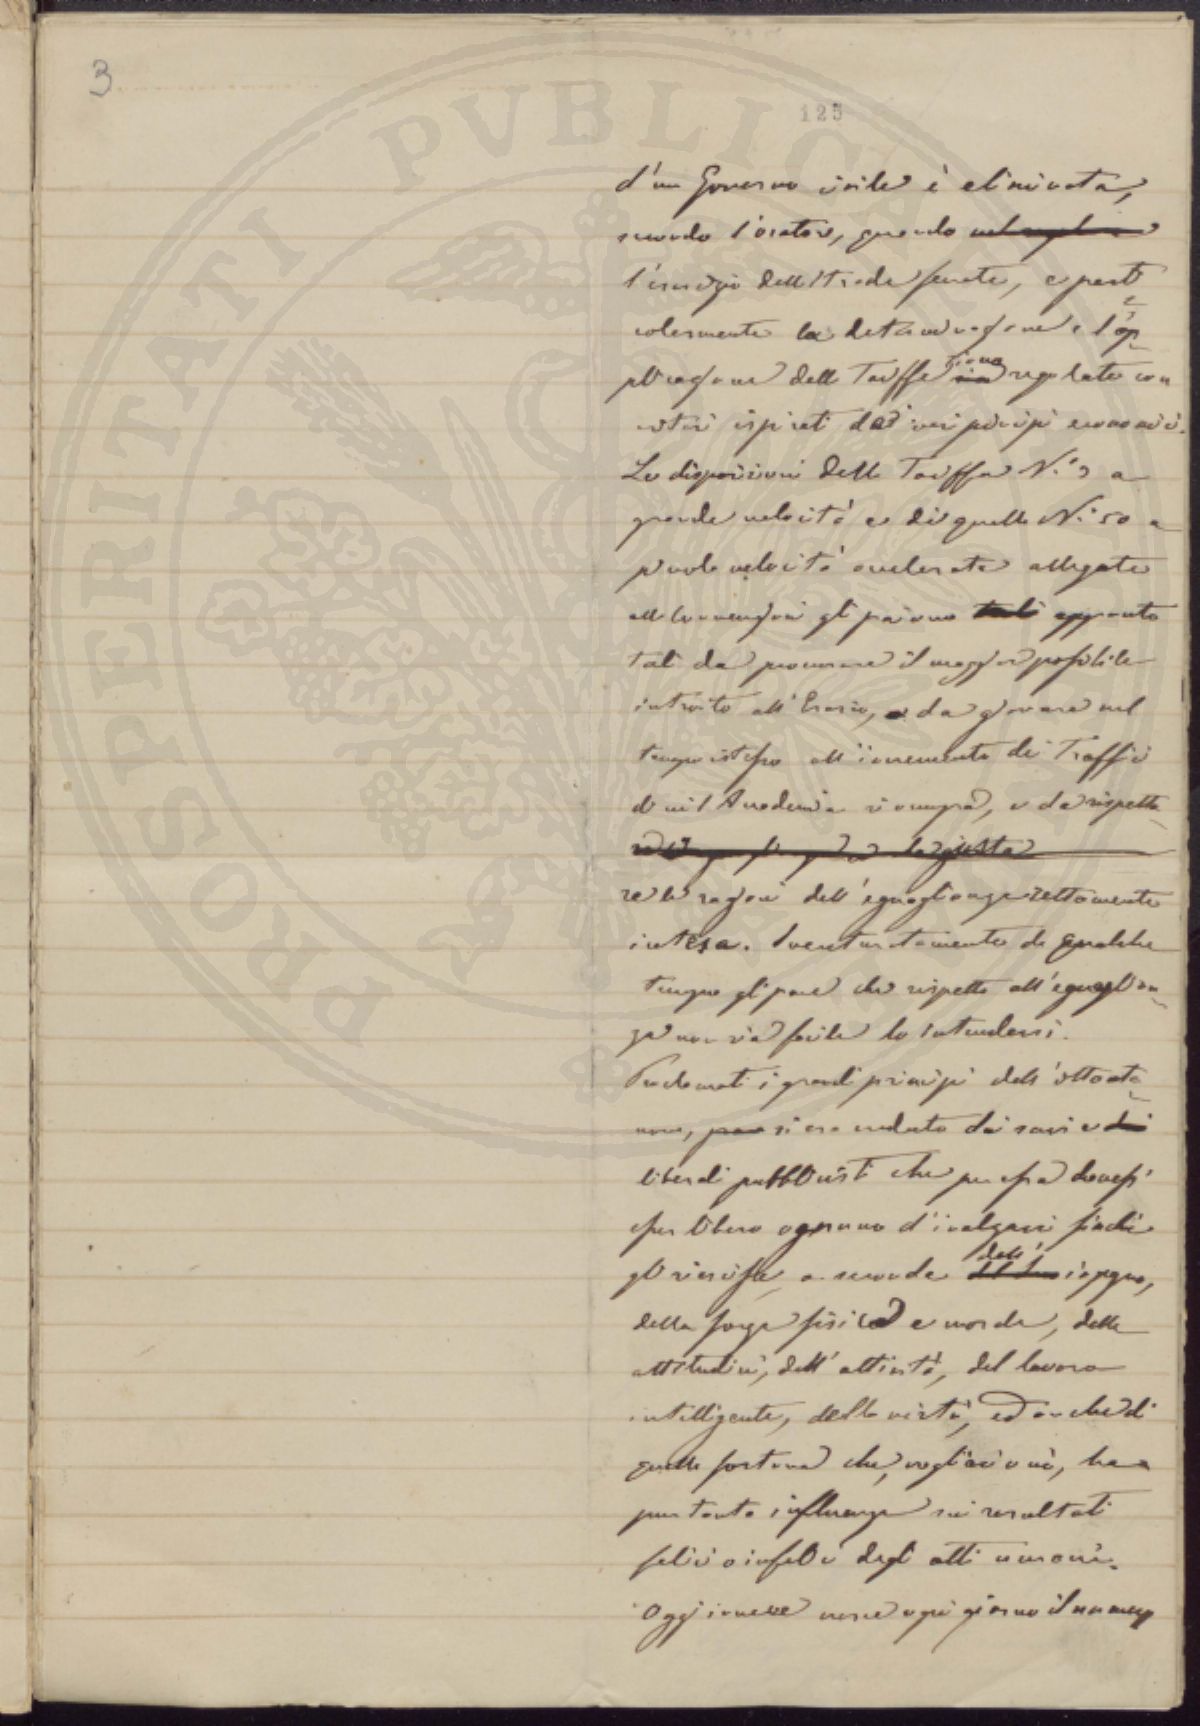 3
125
PVBLICAE
PROSPERITATI
d'un Governo civile è eliminata,
secondo l'oratore, quando
l'esercizio delle strade ferrate, e parti
colarmente la determinazione e l'ap
plicazione delle Tariffe siano regolate con
criteri ispirati dai veri principi economici.
Le disposizioni della Tariffa N.° 3 a
grande velocità e di quella N.° 50 a
piccola velocità accelerata allegate
alle Convenzioni gli paiono tali appunto
tali da procurare il maggior possibile
introito all'Erario, e da giovare nel
tempo istesso all'incremento dei Traffici
di cui l'Accademia si occupa, e da rispetta
la giusta
re le ragioni dell'eguaglianza rettamente
intesa. Sventuratamente da qualche
tempo gli pare che rispetto all'eguaglian
za non sia facile lo intendersi.
Proclamati i grandi principi dell'ottanta
nove, si era creduto dai savi e dai
liberali pubblicisti che per essa dovesse
esser libero ognuno d'innalzarsi finchè
gli riescisse, a seconda dell' ingegno,
della forza fisica e morale, delle
attitudini, dell'attività, del lavoro
intelligente, della virtù, ed anche di
quella fortuna che, vogliasi o nò, ha
pur tanta influenza sui resultati
felici o infelici degli atti umani.
Oggi invece cresce ogni giorno il numero